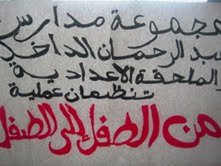 مجموعة مدارس
عبد الرحمان الداخل
الملحقة الاعدادية
تنظمان عملية
من الطفل إلى الطفل